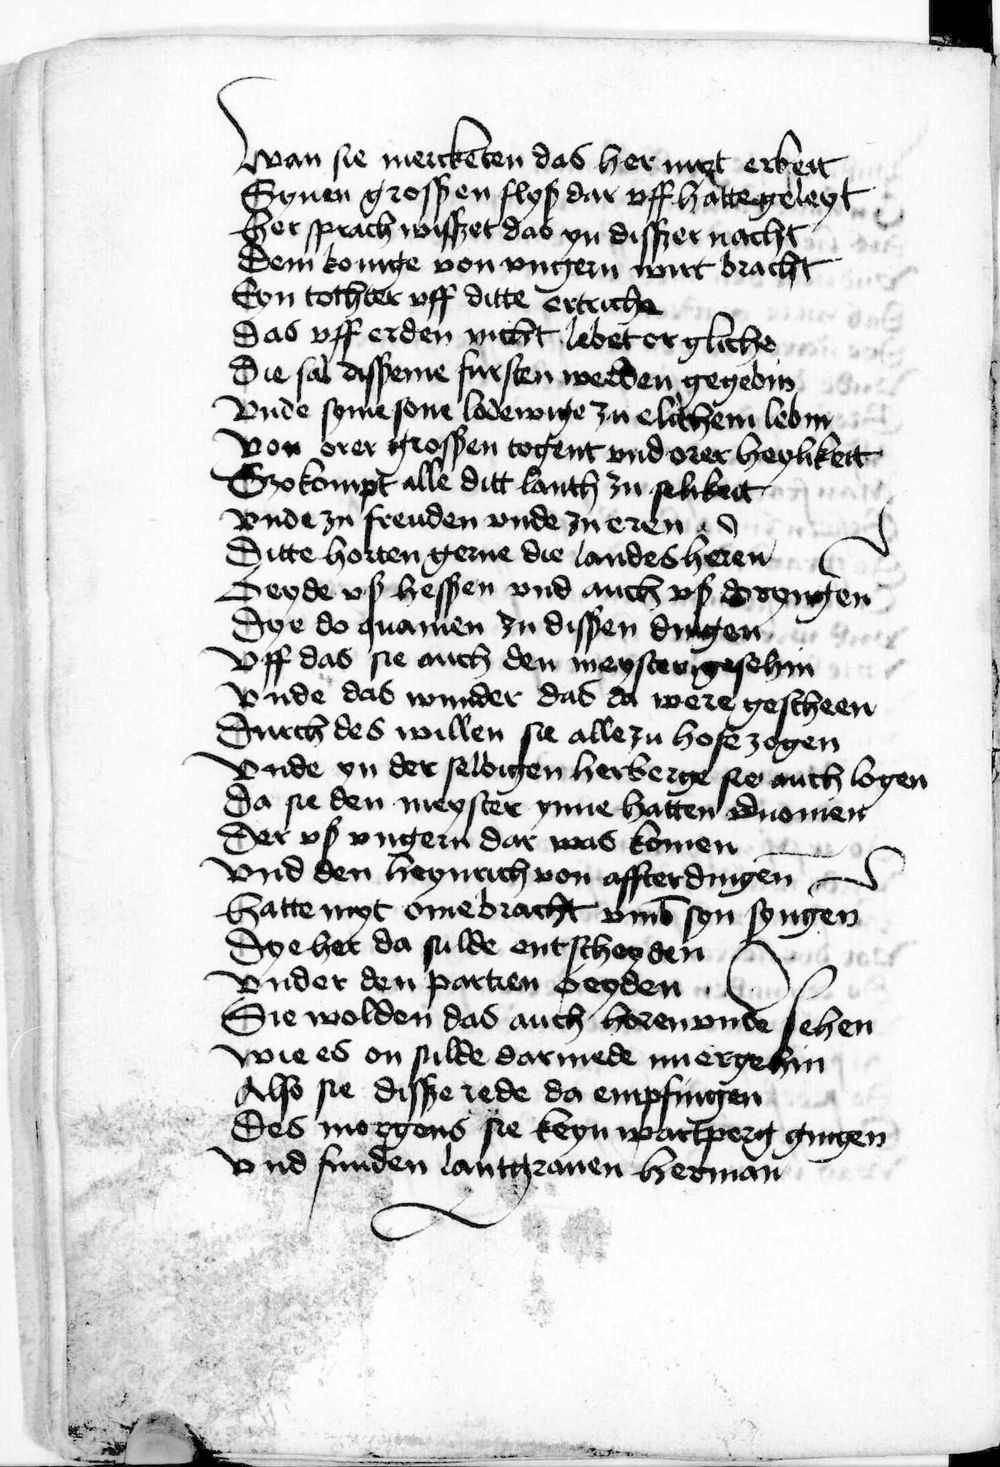 Wan sie merckten das her myt erbeit
Synen grosszen flysz dar vff hatte geleyt
Her sprach wisszet das yn disszer nacht
Dem konige von vngern wirt bracht
Eyn tochter vff ditte ertriche
Das vff erden nicht lebet or gliche
Die sal disszeme fursten werden gegebin
Vnde syme sone lodewige zu elichem lebin
Von orer grosszen togent vnd orer heylikeit
Szo kompt alle ditt lanth zu selikeit
Vnde zu freuden vnde zu eren
Ditte horten gerne die landes heren
Beyde vsz hesszen vnd auch vsz doryngen
Dye do quamen zu disszen dingen
Vff das sie auch den meyster gesehin
Vnde das wunder das da were gescheen
Durch des willen sie alle zu hofe zogen
Vnde yn der selbigen herberge sie auch logen
Da sie den meyster ynne hatten vornomen
Der vsz vngern dar was komen
Vnd den heynrich von affterdingen
Hatte myt ome bracht vmb syn syngen
Dye her da sulde entscheyden
Vnder den partien beyden
Sie wolden das auch horen vnde sehen
Wie es on sulde darmede nu ergehin
Also sie dissze rede da empfingen
Des morgens sie keyn wartperg gingen
Vnd funden lantgrauen herman